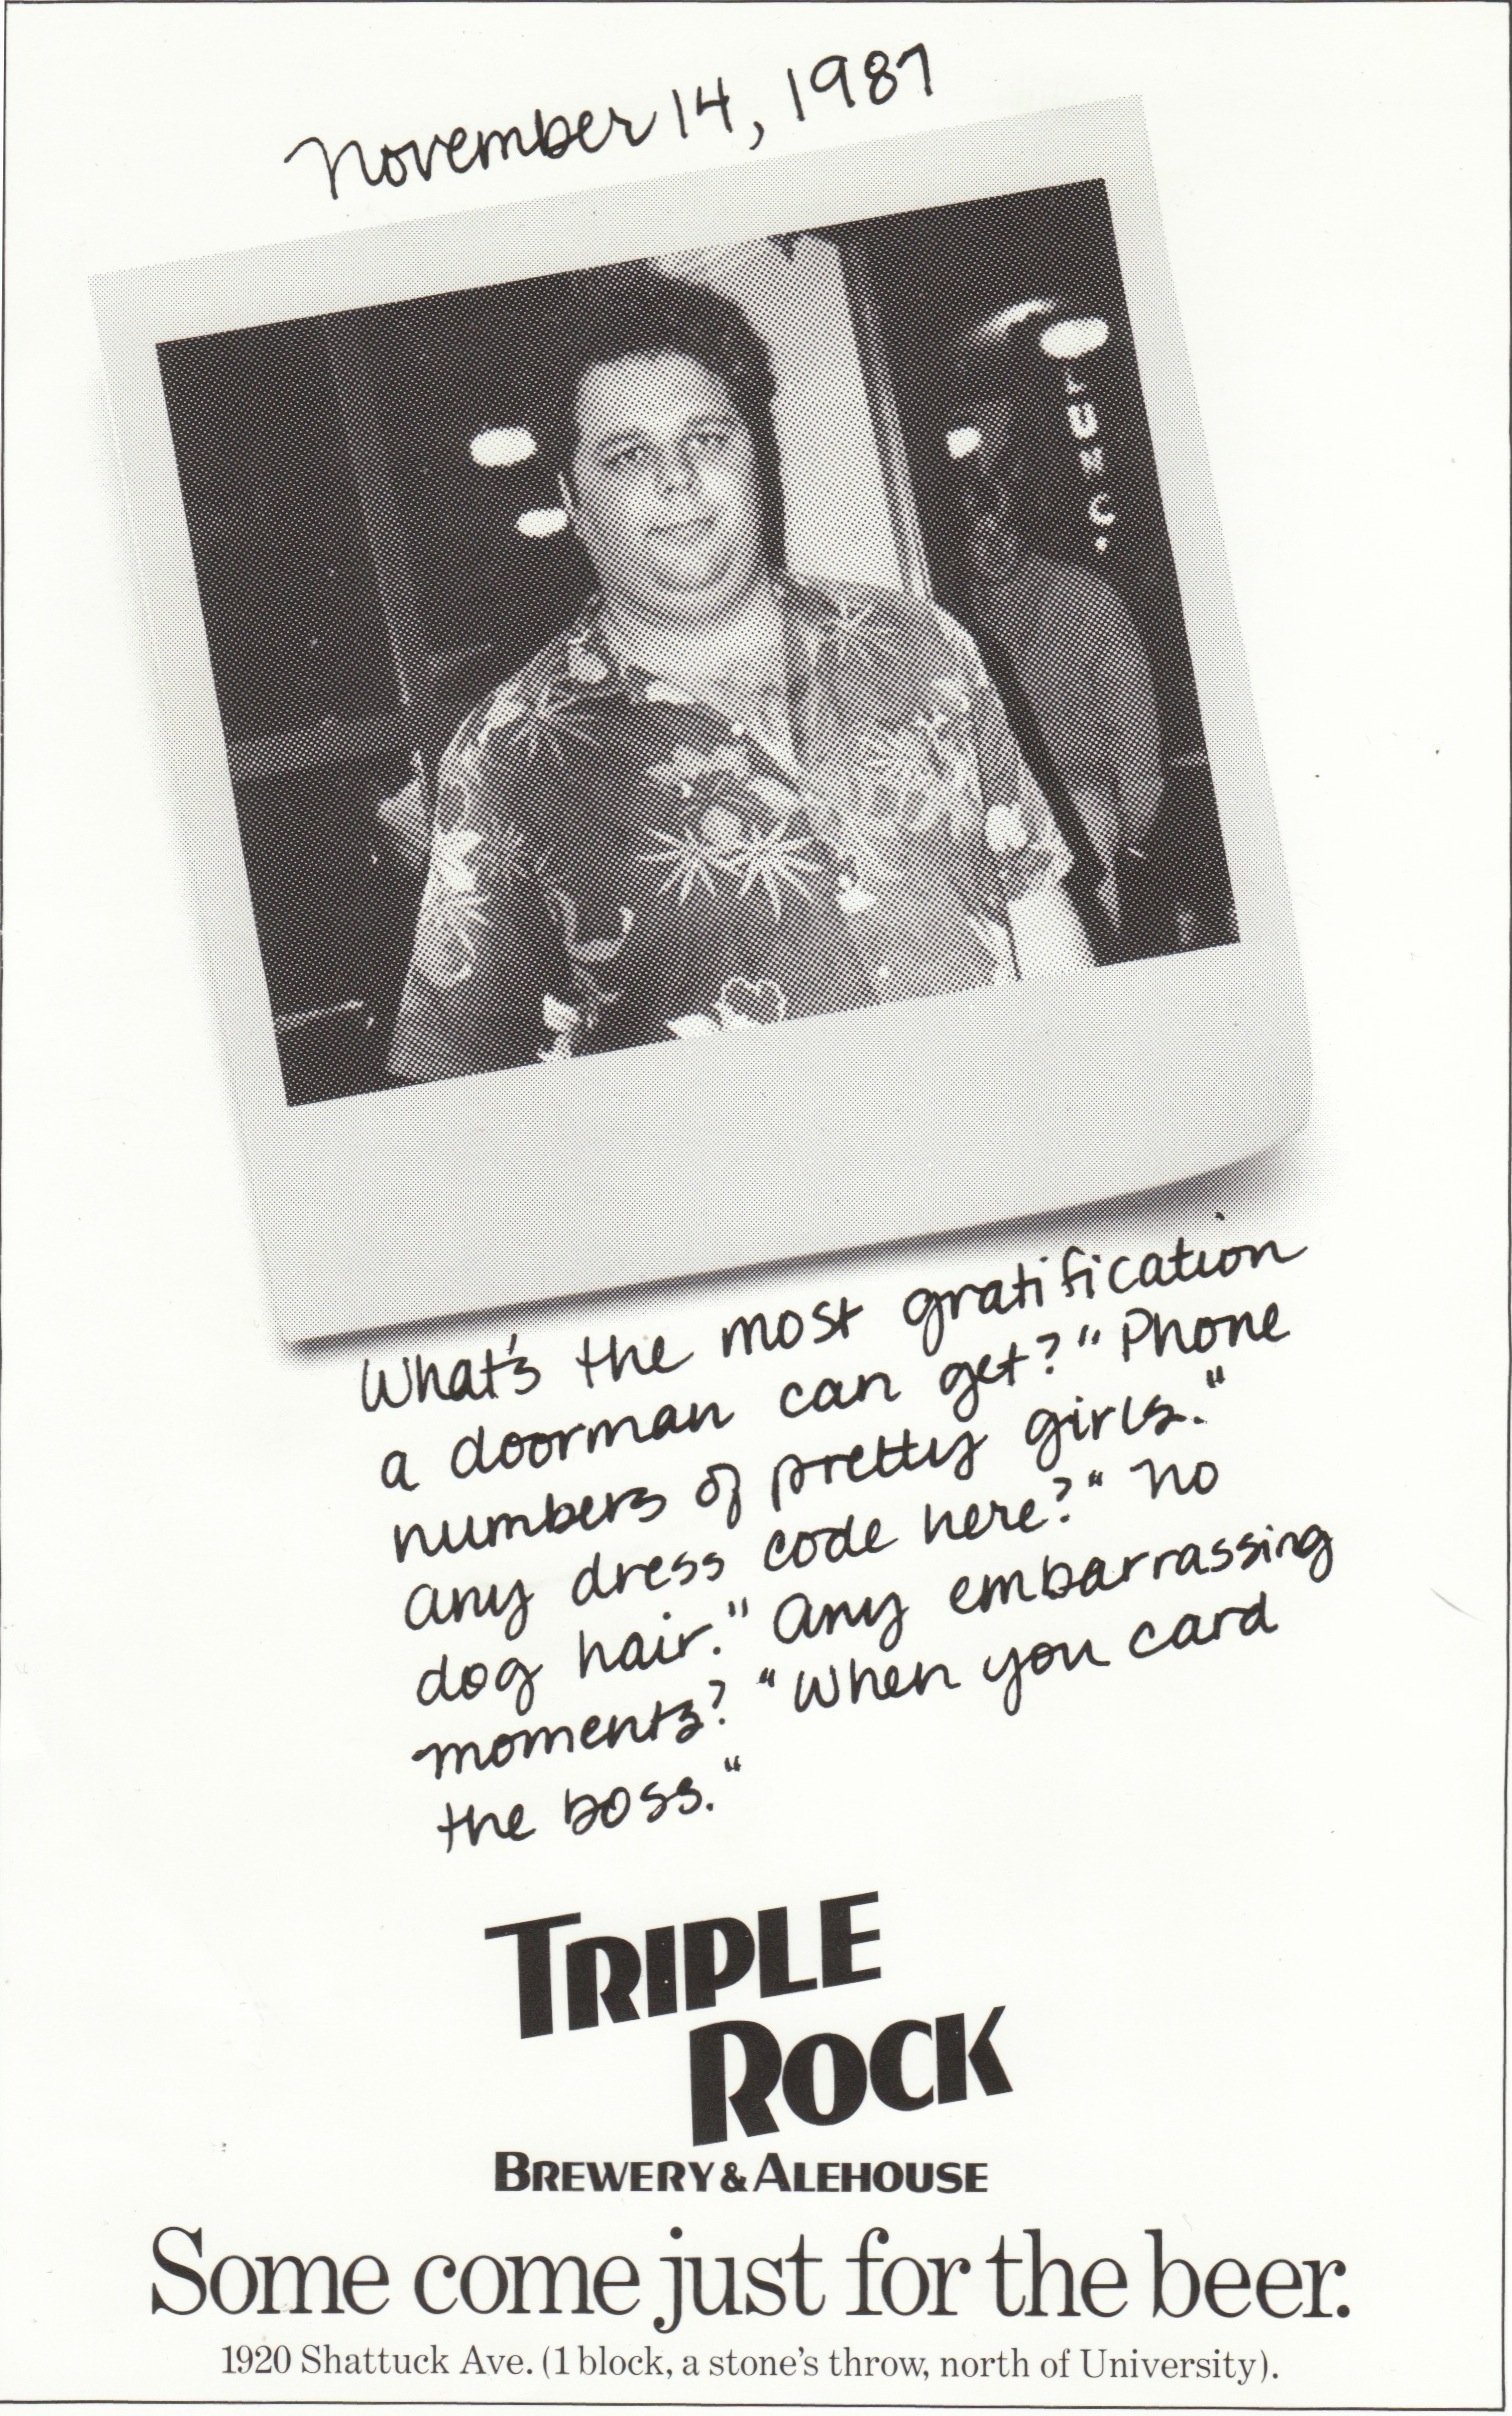 November 14, 1987
What's the most gratification
a doorman can get? "Phone
numbers of pretty girls."
Any dress code here? "No
dog hair." Any embarrassing
moments? "When you card
the boss."
TRIPLE
ROCK
BREWERY & ALEHOUSE
Some come just for the beer.
1920 Shattuck Ave. (1 block, a stone's throw, north of University).